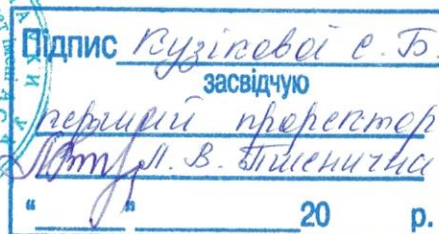 Підпис Кузікової С. Б.
засвідчую
перший проректор
Л. В. Пшенична
“ ” 20 р.